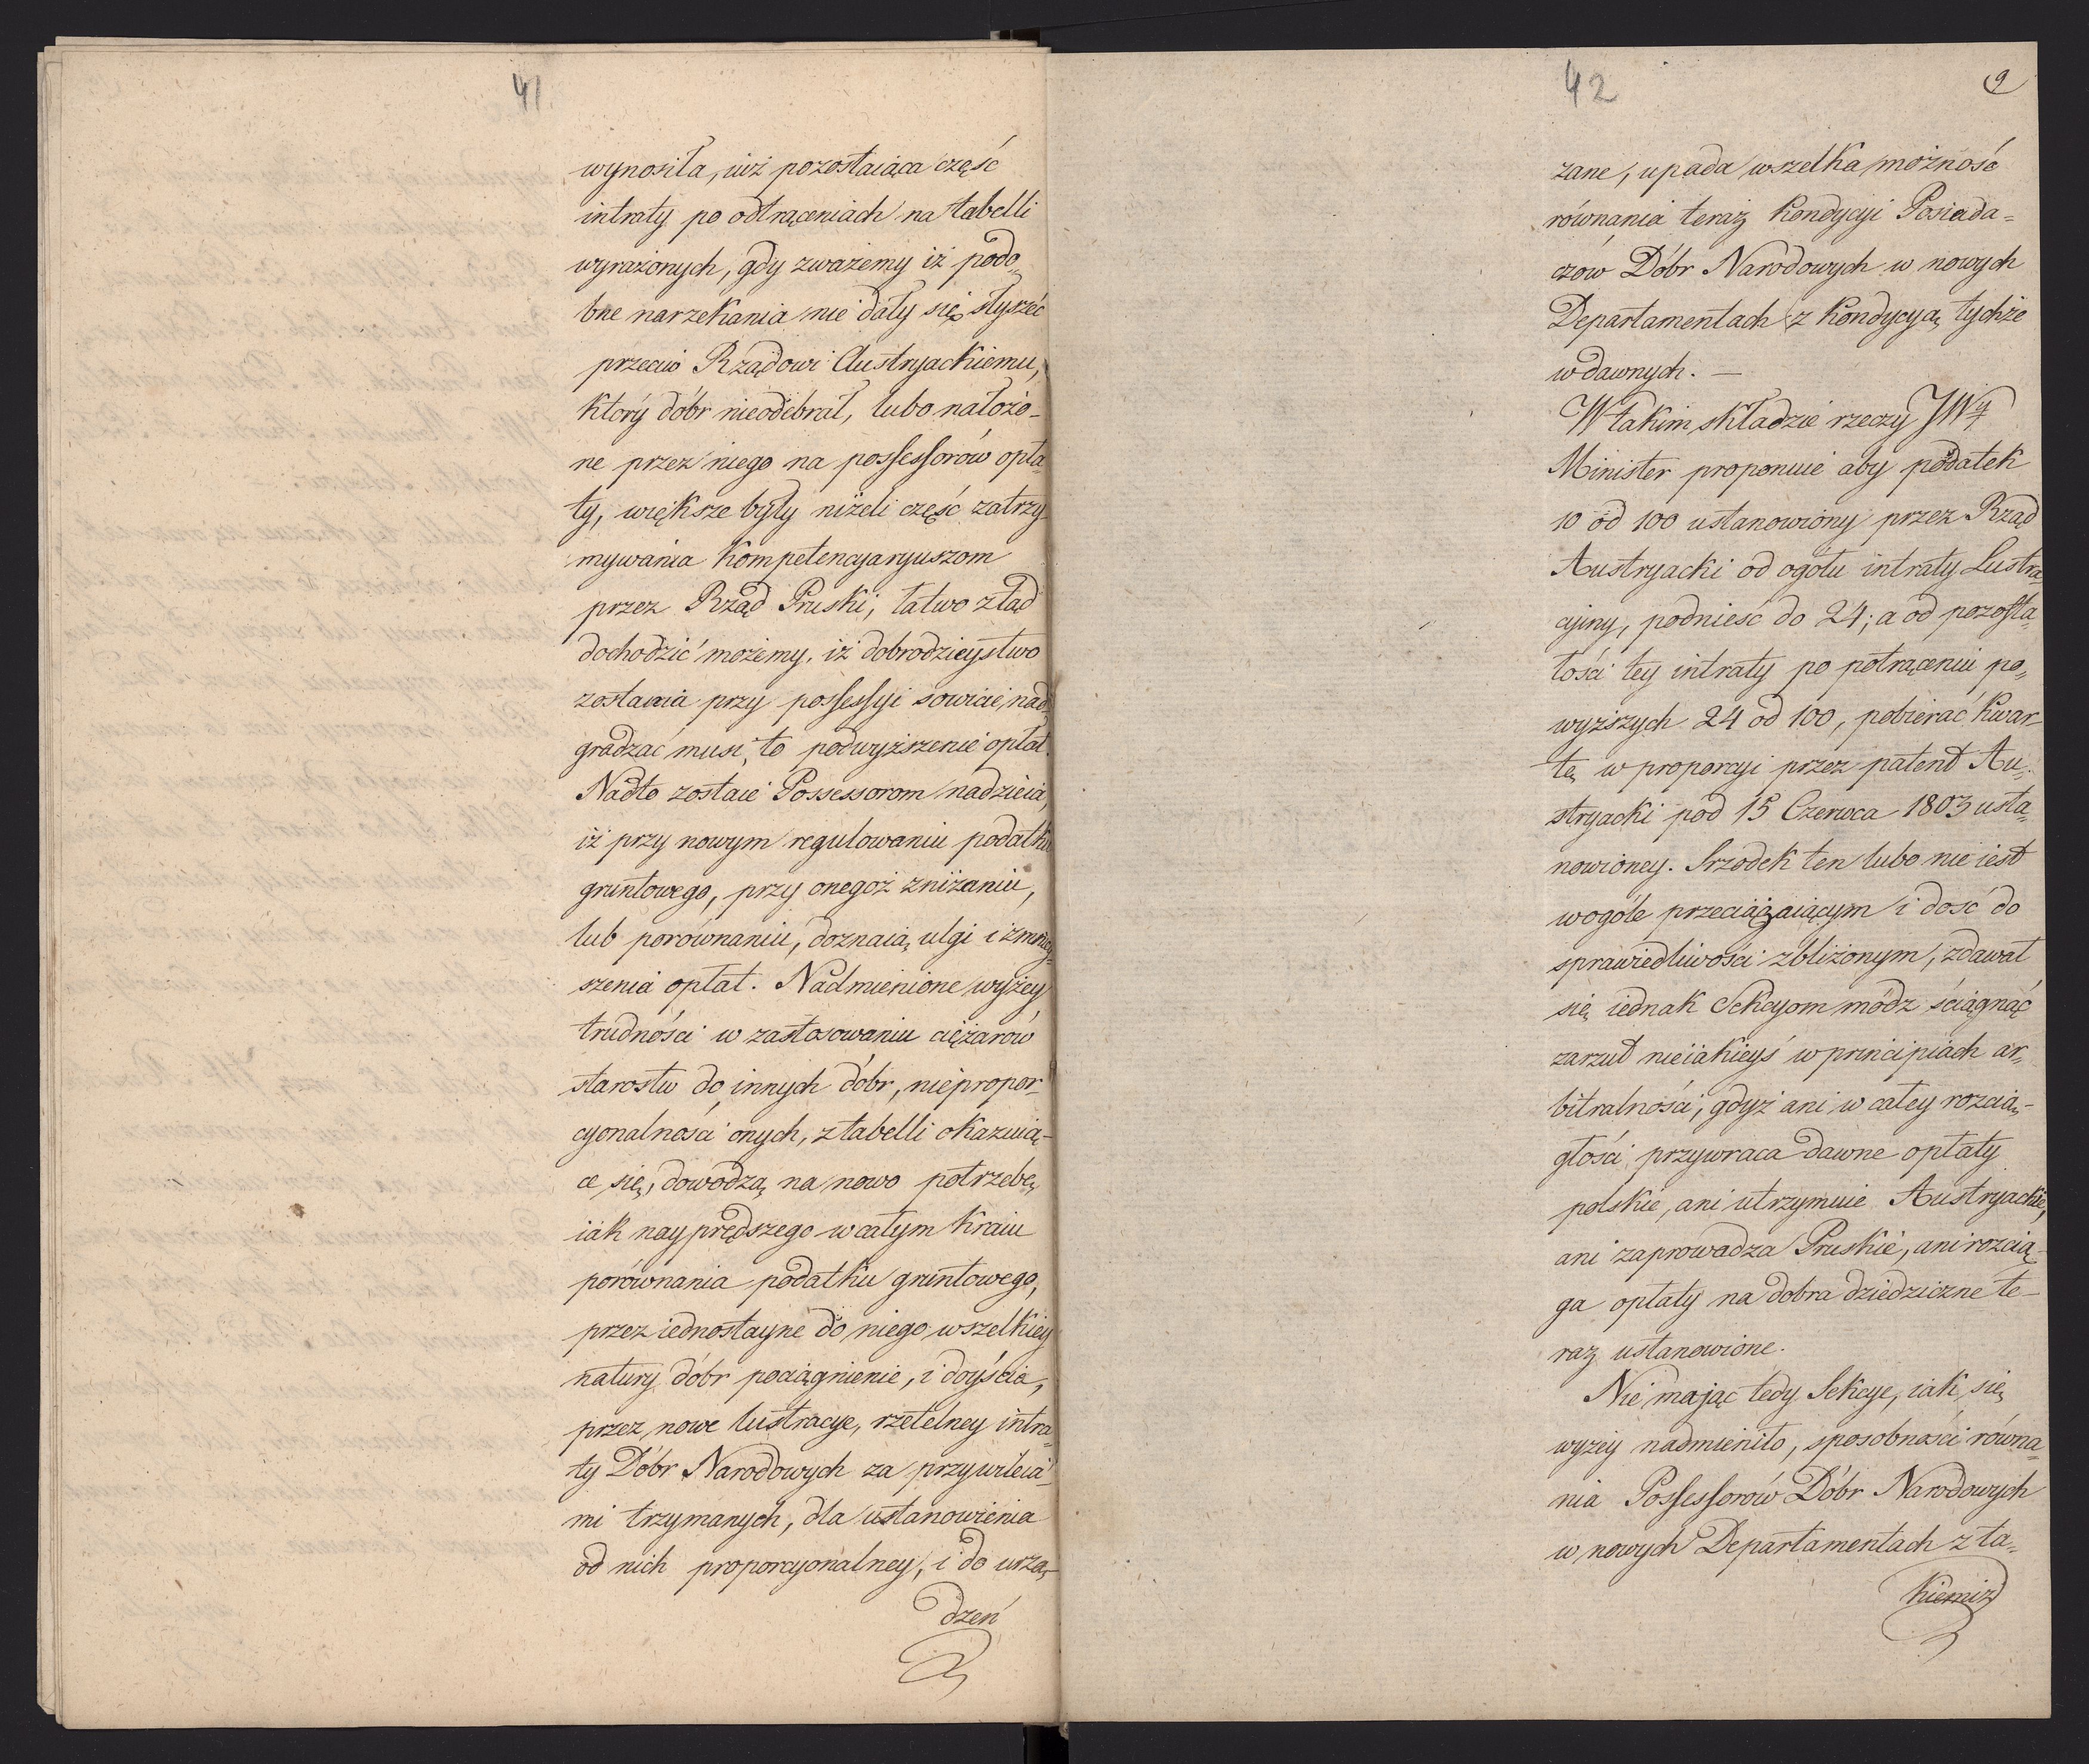 41
wynosiła, iuż pozostaiąca część
intraty po odtrąceniach na tabelli
wyrażonych, gdy zważemy iż podo„
bne narzekania nie dały się słyszeć
przeciw Rządowi Austryackiemu,
który dóbr nieodebrał, lubo nałożo-
ne przez niego na possessorów opła„
ty, większe były niżeli część zatrzy-
mywania Kompetencyaryuszom
przez Rząd Pruski; łatwo ztąd
dochodzić możemy, iż dobrodzieystwo
zostania przy possessyi sowicie nad„
gradzać musi, to podwyższenie opłat.
Nadto zostaie Possessorom nadzieia,
iż przy nowym regulowaniu podatku
gruntowego, przy onegoż zniżaniu,
lub porównaniu, doznaią ulgi i zmniey„
szenia opłat. Nadmienione wyżey
trudności w zastosowaniu ciężarów
starostw do innych dóbr, niepropor-
cyonalności onych, z tabelli okazuią-
ce się, dowodzą na nowo potrzebę,
iak nayprędszego w całym Kraiu
porównania podatku gruntowego,
przez iednostayne do niego wszelkiey
natury dóbr pociągnienie, i doyścia,
przez nowe lustracye, rzetelney intra„
ty Dóbr Narodowych za przywileia-
mi trzymanych, dla ustanowienia
od nich proporcyonalney, i do urzą-
dzeń
42
9
zane, upada wszelka możność
równania teraz Kondycyi Posiada=
czów Dóbr Narodowych w nowych
Departamentach z Kondycyą tychże
w dawnych. —
W takim składzie rzeczy JWy
Minister proponuie aby podatek
10 od 100 ustanowiony przez Rząd
Austryacki od ogółu intraty Lustra„
cyiny, podnieść do 24; a od pozosta„
łości tey intraty po potrąceniu po„
wyższych 24 od 100, pobierać Kwar-
tę w proporcyi przez patent Au„
stryacki pod 15 Czerwca 1803 usta„
nowioney. Srzodek ten lubo nie iest
wogóle przeciążaiącym i dość do
sprawiedliwości zbliżonym, zdawał
się iednak Sekcyom módz ściągnąć
zarzut nieiakieyś w principiach ar„
bitralności, gdyż ani w całey rozcią-
głości przywraca dawne opłaty
polskie, ani utrzymuie Austryackie,
ani zaprowadza Pruskie, ani rozcią-
ga opłaty na dobra dziedziczne te-
raz ustanowione.
Nie mając tedy Sekcye, iak się
wyżey nadmieniło, sposobności równa„
nia Possessorów Dóbr Narodowych
w nowych Departamentach z ta„
kiemiż